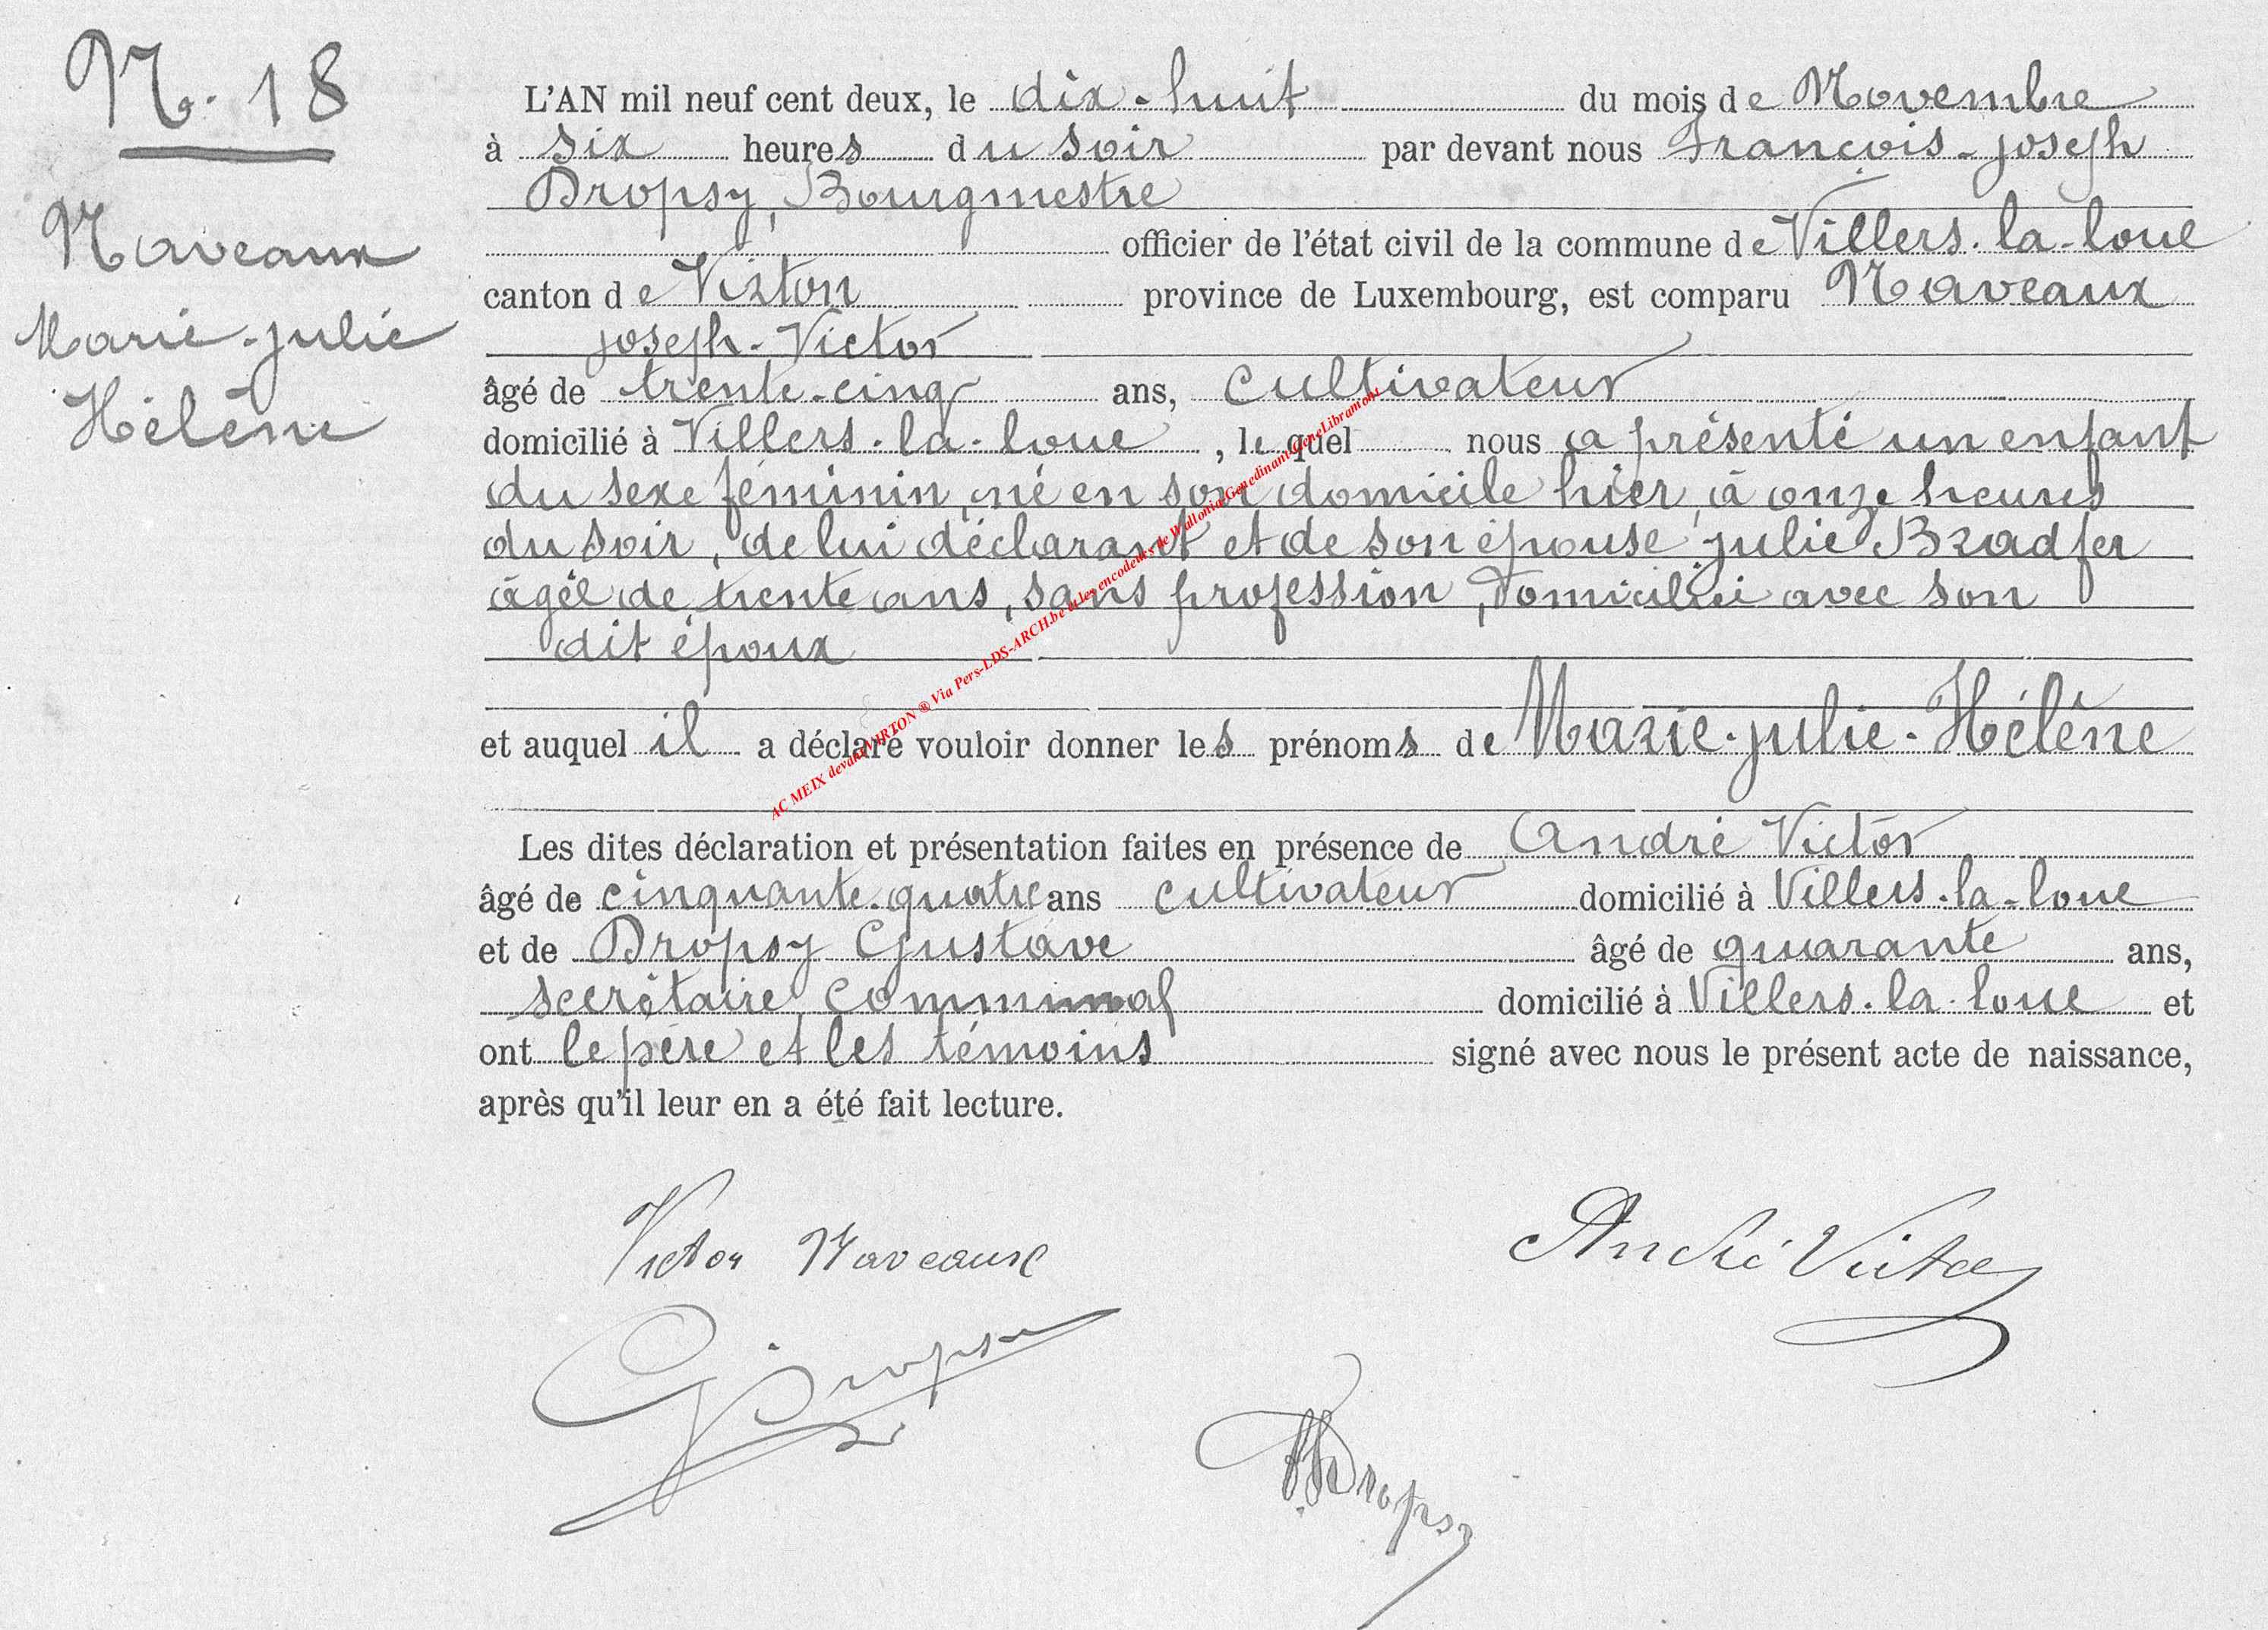 N. 18
Naveaux
Marie-julie
Hélène
L'AN mil neuf cent deux, le dix-huit du mois de Novembre
à six heures du soir par devant nous François-joseph
Dropsy, Bourgmestre
officier de l'état civil de la commune de Villers-la-loue
canton de Virton province de Luxembourg, est comparu Naveaux
joseph-Victor
âgé de trente-cinq ans, cultivateur
domicilié à Villers-la-loue, lequel nous a présenté un enfant
du sexe féminin, né en son domicile hier, à onze heures
du soir, de lui déclarant et de son épouse julie Bradfer
âgée de trente ans, sans profession, domiciliée avec son
dit époux
et auquel il a déclaré vouloir donner les prénoms de Marie-julie-Hélène
AC MEIX devant VIRTON ® Via Pers-LDS-ARCH.be et les encodeurs de Wallonia-Genedinant-GeneLibramont
Les dites déclaration et présentation faites en présence de André Victor
âgé de cinquante-quatre ans cultivateur domicilié à Villers-la-loue
et de Dropsy Gustave âgé de quarante ans,
secrétaire communal domicilié à Villers-la-loue et
ont le père et les témoins signé avec nous le présent acte de naissance,
après qu'il leur en a été fait lecture.
Victor Naveaux
André Victor
G Dropsy
Dropsy